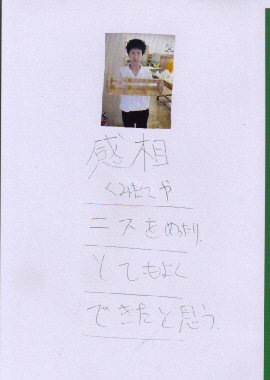 感相
くみたてや
ニスをぬったり、
とてもよく
できたと思う。